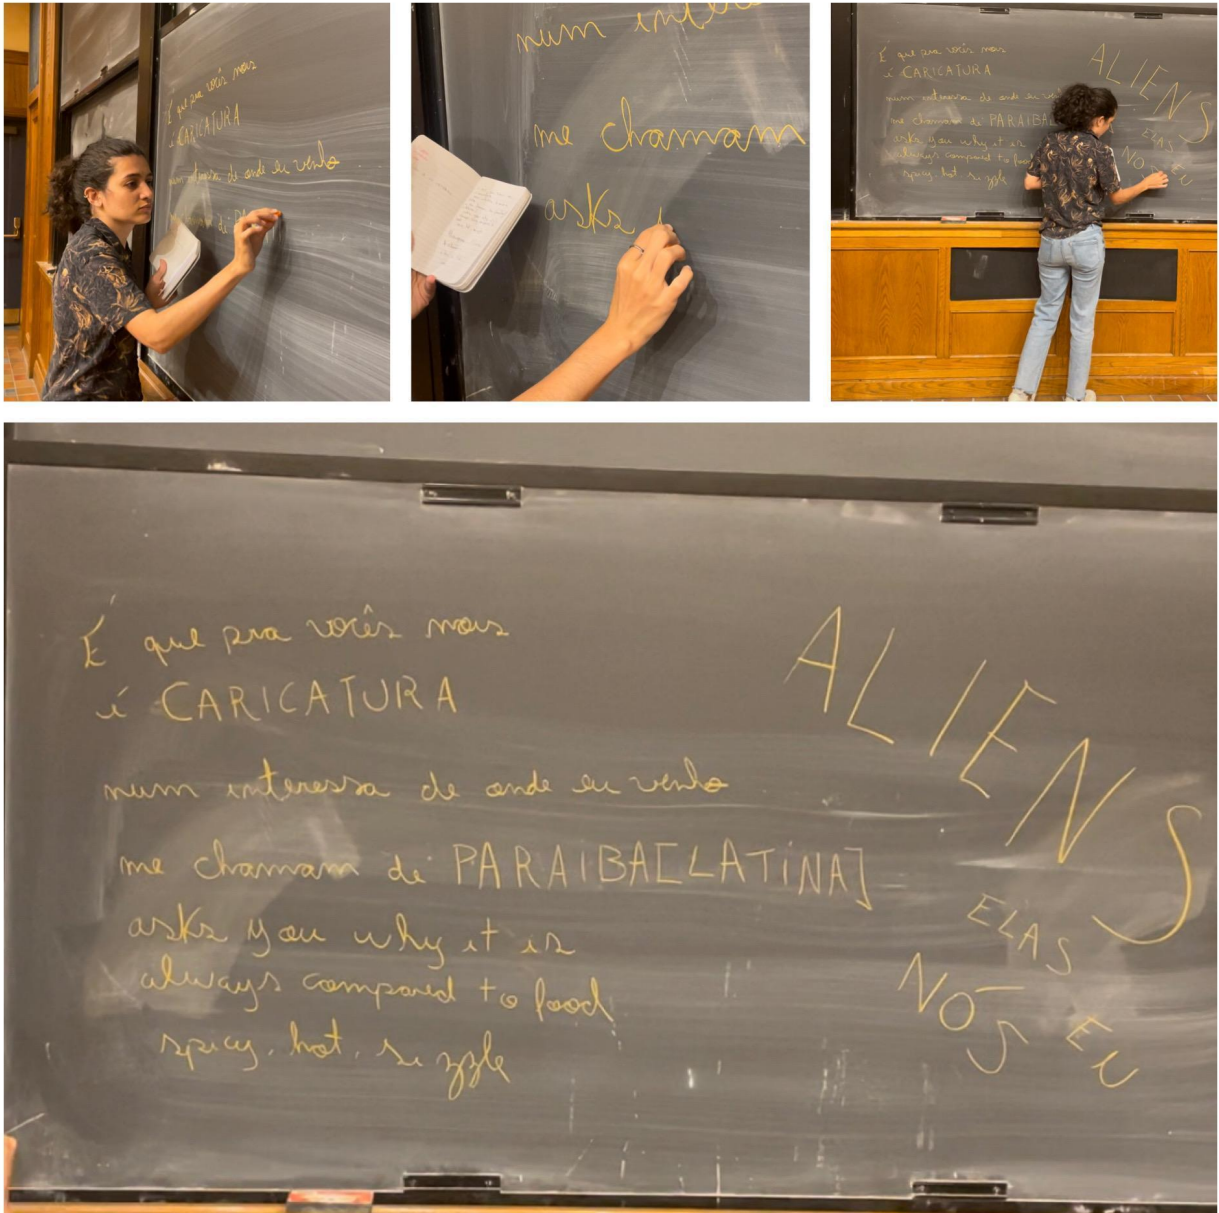 É que pra vocês nois
é CARICATURA
num interessa de onde eu venho
me chamam di PD
num inter
me chamam
asks y
É que pra vocês nois
é CARICATURA
num interessa de onde eu ve
me chamam di PARAIBA
asks you why it is
always compared to foo
spicy. hot. sizzle
ALIENS
ELAS
NOS
EU
É que pra vocês nois
é CARICATURA
num interessa de onde eu venho
me chamam di PARAIBA[LATINA]
asks you why it is
always compared to food
spicy. hot. sizzle
ALIENS
ELAS
NÓS
EU